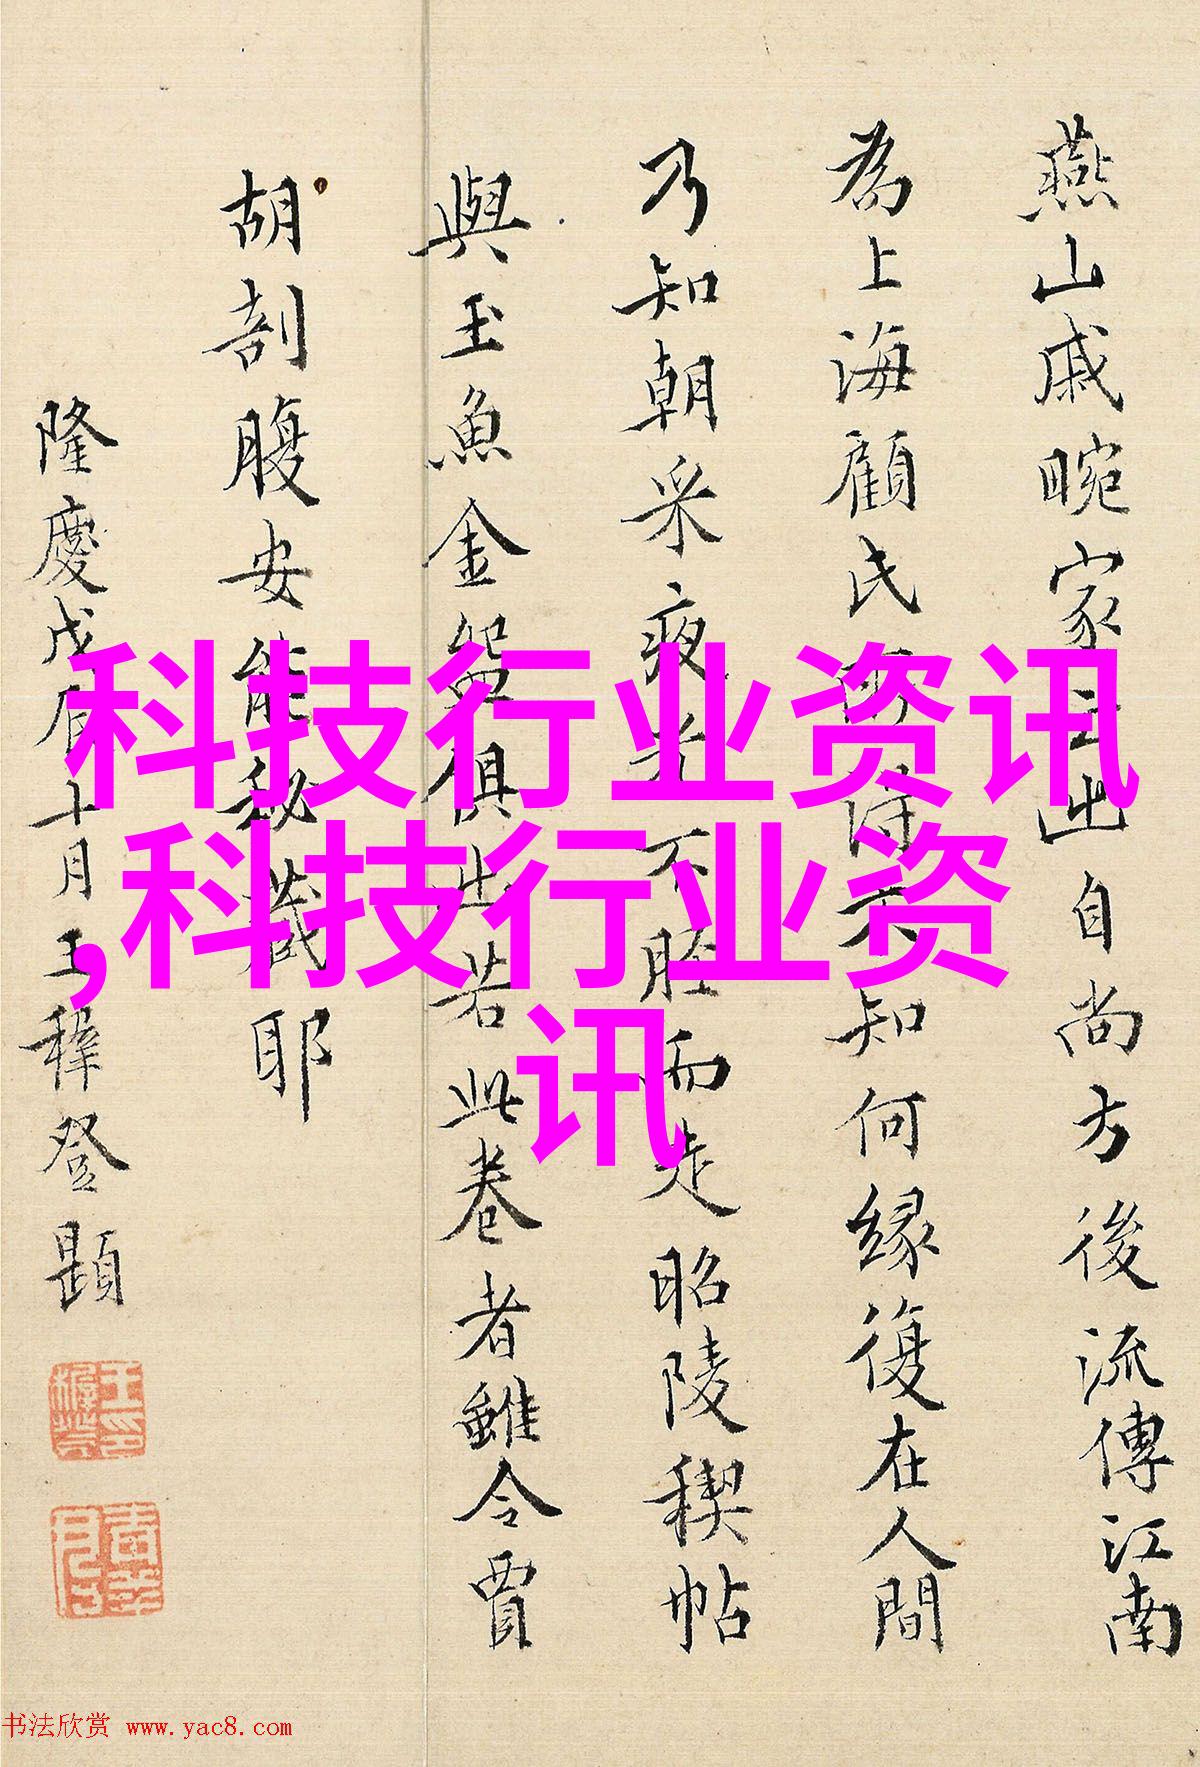 燕山戚畹家云出自尚方後流傳江南
為上海顧氏所得不知何緣復在人間
乃知朝采夜光不脛而走昭陵稧帖
與玉魚金盌俱出若此卷者雖令賈
胡剖腹安能秘藏耶
隆慶戊辰十月王穉登題
科技行业资讯
,科技行业资
讯
书法欣赏 www.yac8.com